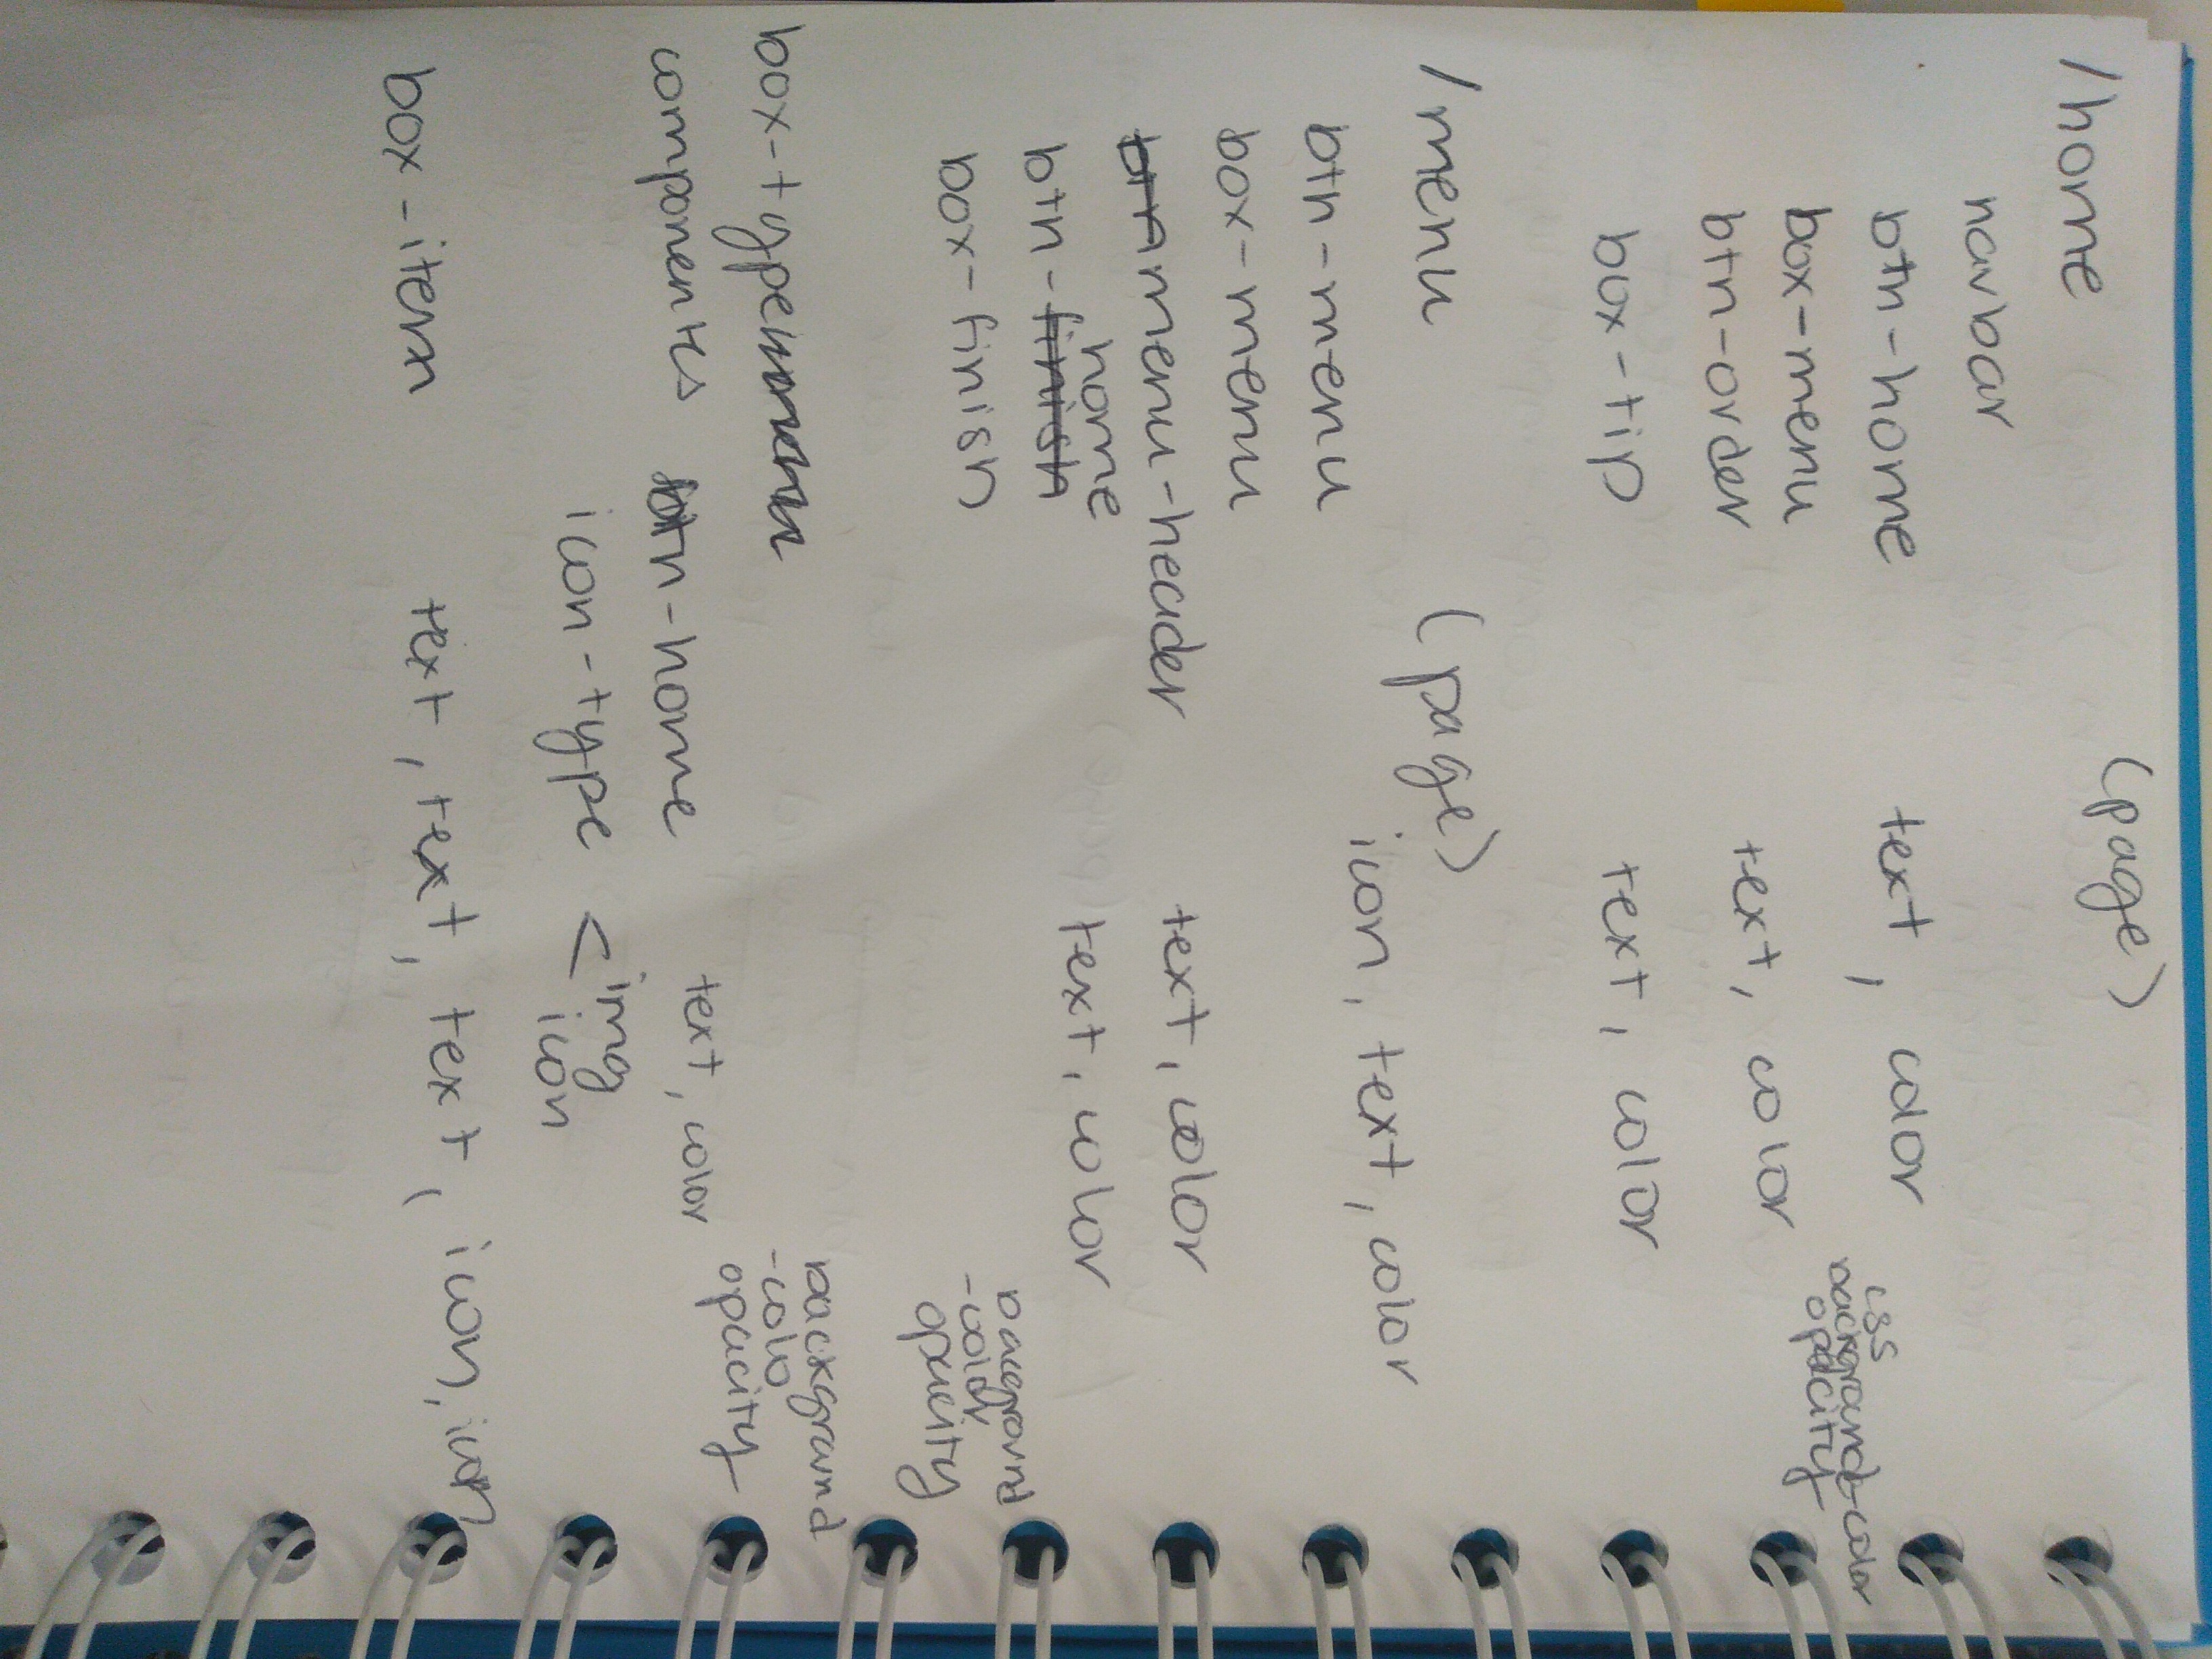 /home (page)
navbar
btn-home text, color
css
background-color
opacity
box-menu
btn-order text, color
box-tip text, color
/menu (page)
btn-menu icon, text, color
box-menu
btn menu-header text, color
home
btn-finish text, color
box-finish
background
-color
opacity
box-type menu
background
-colo
opacity
componentes btn-home text, color
icon-type < img
icon
box-item text, text, text, icon, icon